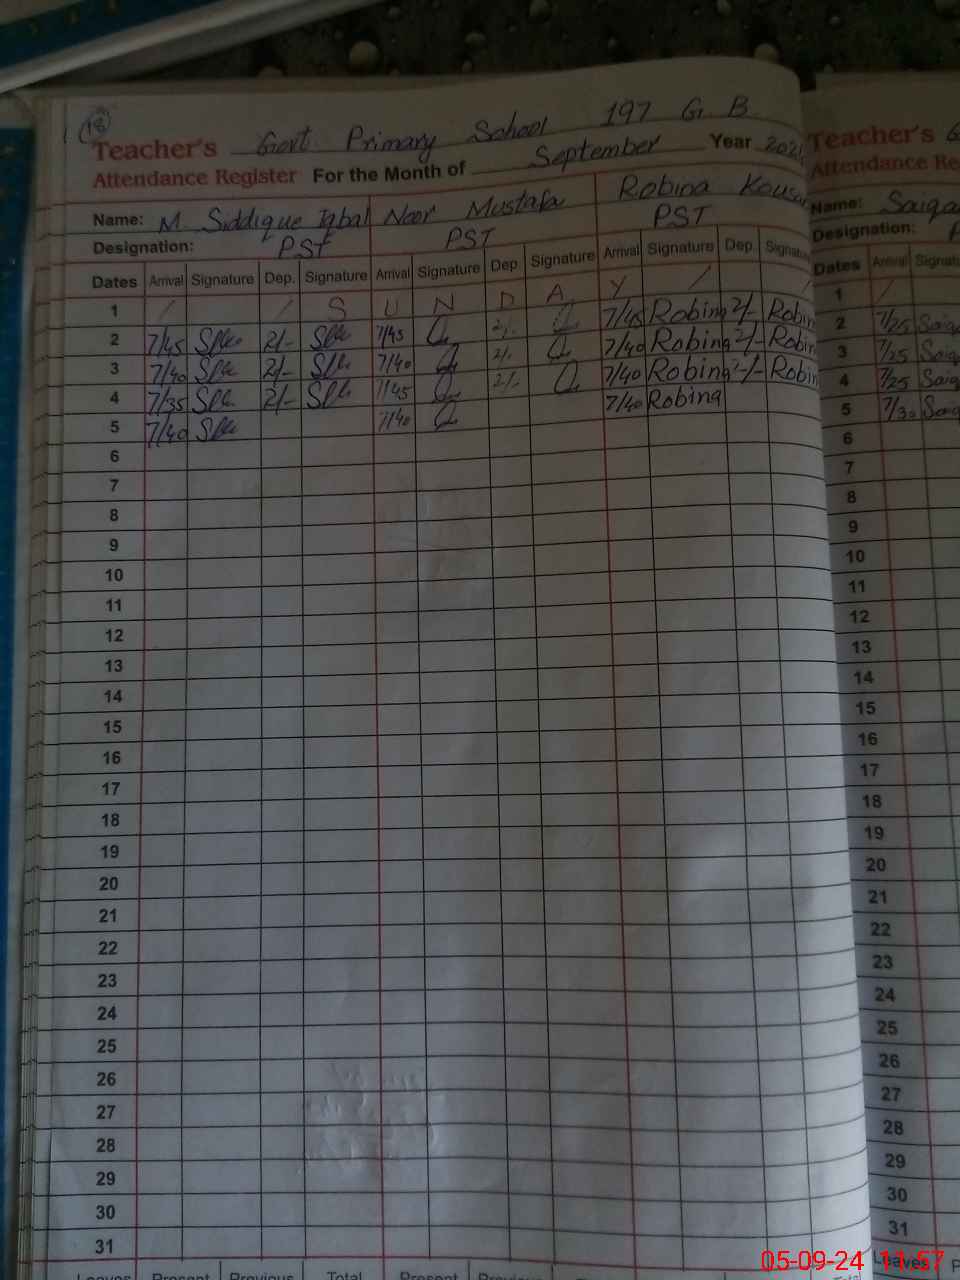 18
Teacher's Govt. Primary School 197 G. B.
Attendance Register For the Month of September Year
Name: M. Siddique Iqbal Noor Mustafa Robina
Designation: PST PST PST
Dates Arrival Signature Dep. Signature Arrival Signature Dep. Signature Arrival Signature Dep. Signature
1 / / S U N D A Y /
2 7/45 2/- 7/45 2/- 7/45 Robina 2/- Robin
3 7/40 2/- 7/40 2/- 7/40 Robina 2/- Robin
4 7/35 2/- 7/45 2/- 7/40 Robina 2/- Robin
5 7/40 7/40 7/40 Robina
6
7
8
9
10
11
12
13
14
15
16
17
18
19
20
21
22
23
24
25
26
27
28
29
30
31
Leaves Present Previous Total Present
Teacher's G
Attendance Re
Name: Saiqa
Designation: P
Dates Arrival Signatu
1 /
2 7/25 Saiq
3 7/25 Saiq
4 7/25 Saiq
5 7/30 Saiq
6
7
8
9
10
11
12
13
14
15
16
17
18
19
20
21
22
23
24
25
26
27
28
29
30
31
Leaves
05-09-24 11:57